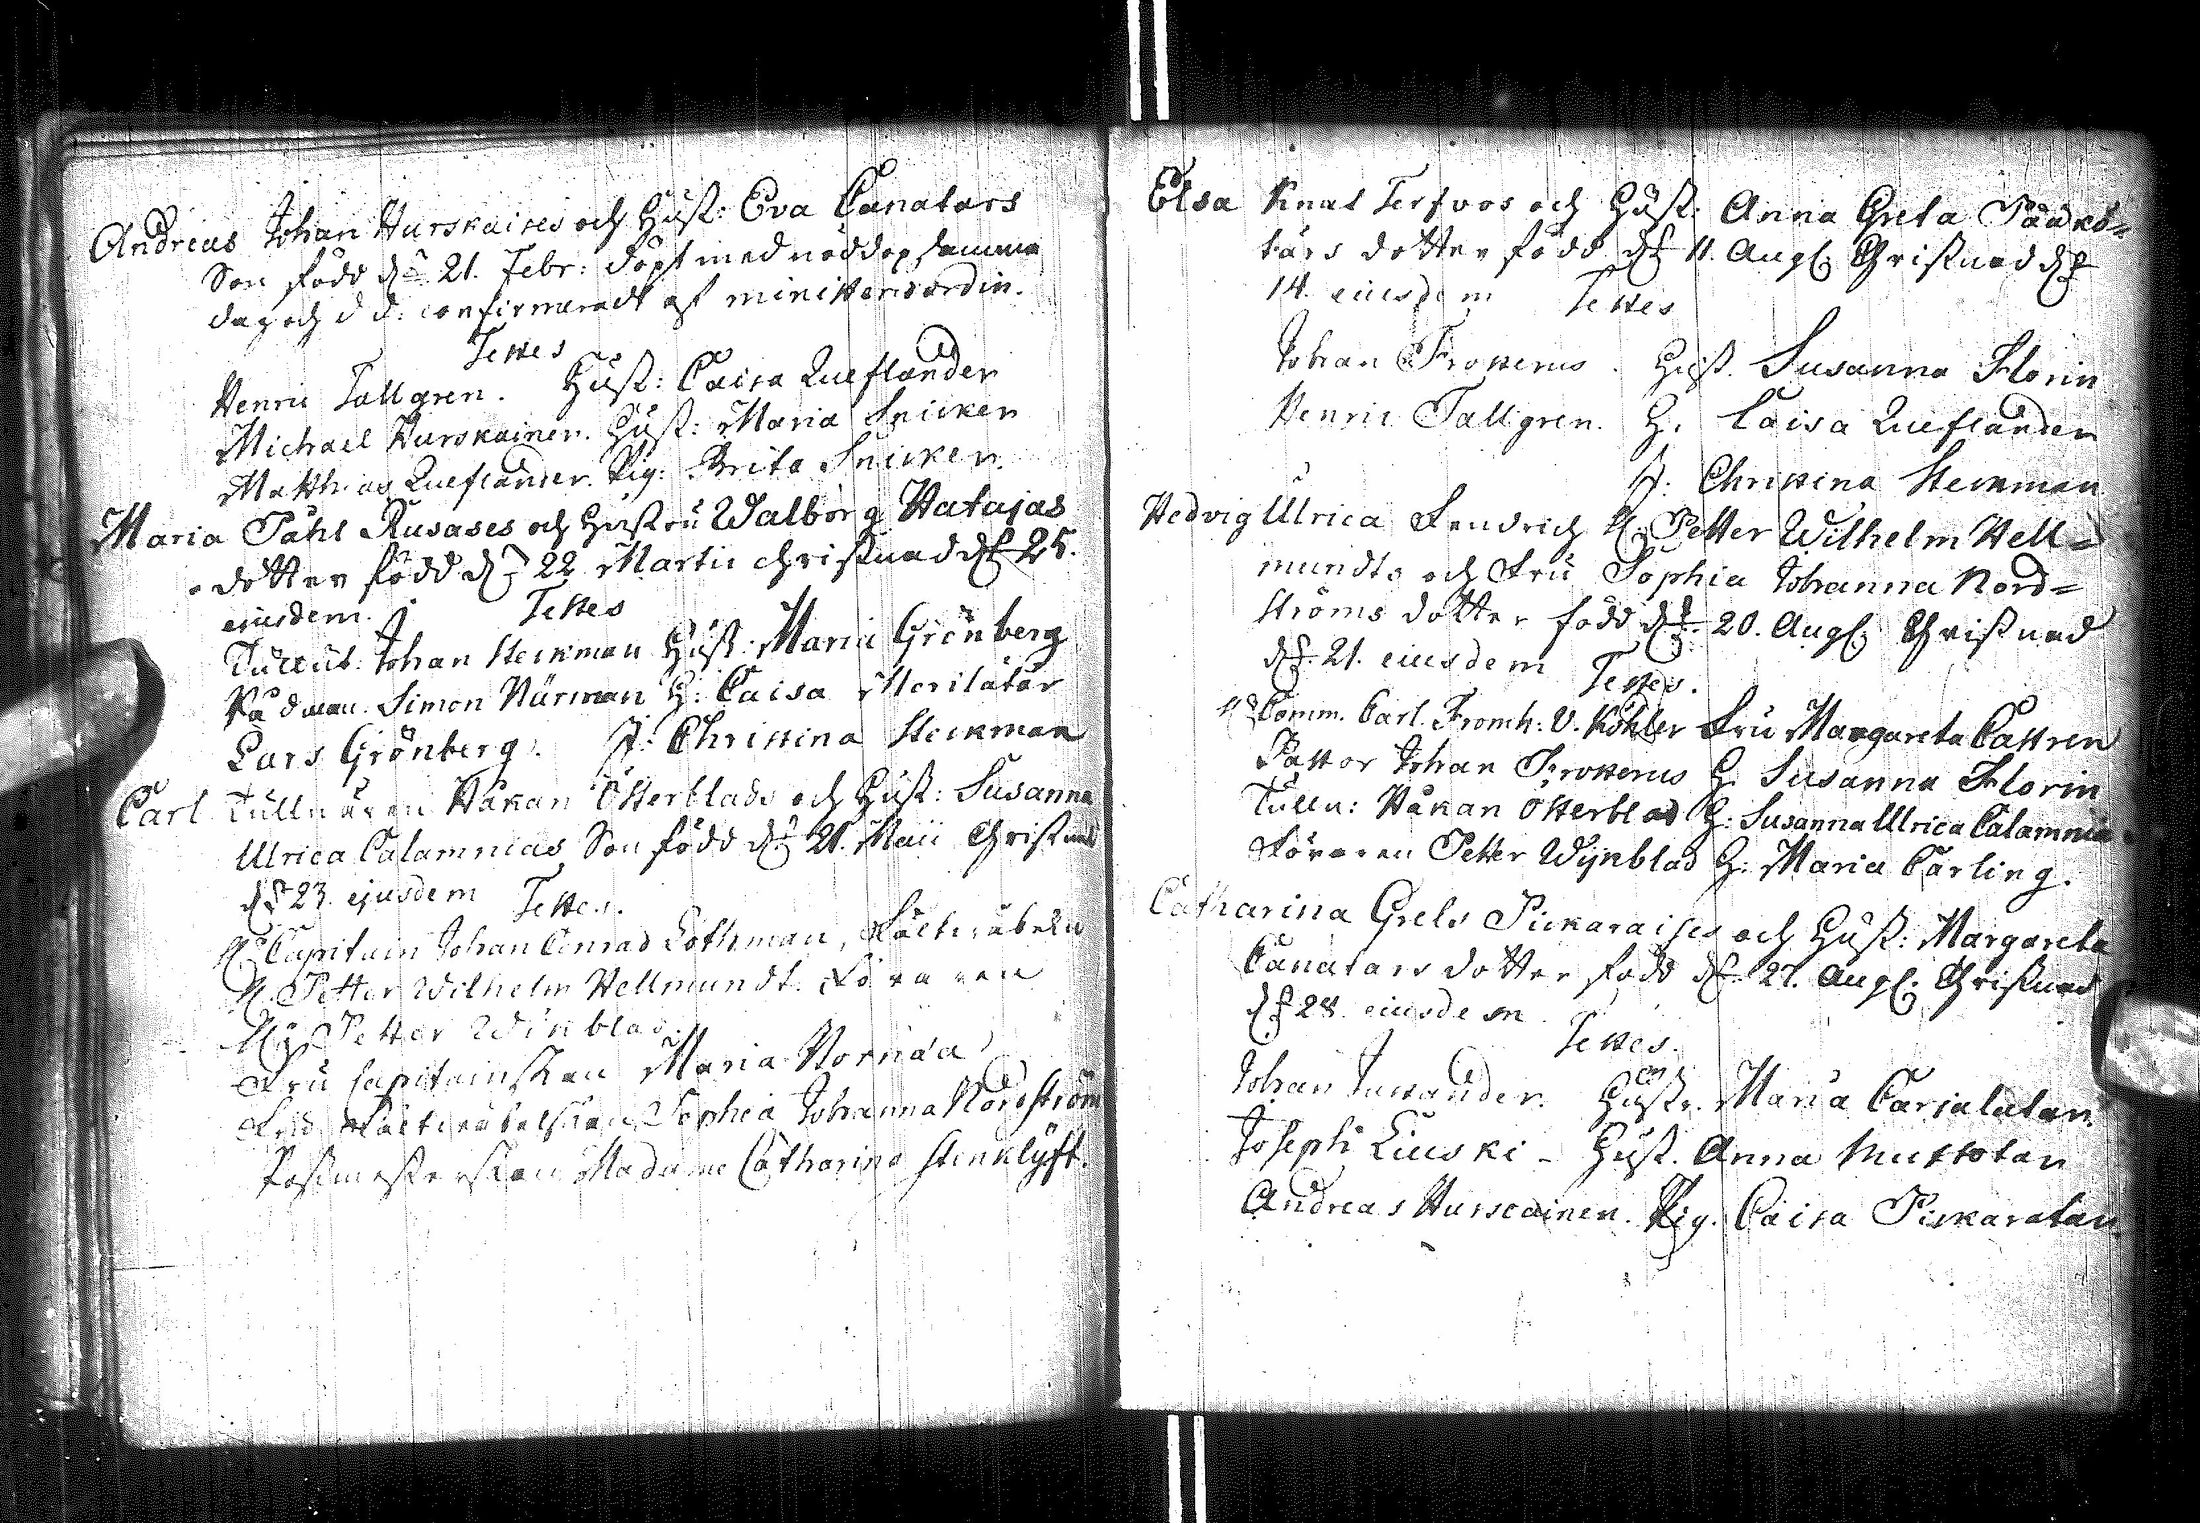 Andreas Johan Hurskaises och Hust: Eva Canatars
Son född dn 21. Febr: döpt med nöddop samma
dag och d d: confirmeradt af ministerio ordin.
Testes
Henric Tallgren. Hust: Caisa Lueflander
Michael Hurskainen. Hust: Maria Snicker
Matthias Lueflander. Pig: Brita Snicker.
Maria Påhl Rusases och Hustru Walborg Hatajas
dotter född dn 22 Martii christnad d 25.
ejusdem. Testes
Johan Steckman Hust: Maria Grönberg
Rådman. Simon Hürman H: Caisa
Lars Grönberg. J: Christina Steckman
Carl Tullnären Håkan Österblads och Hust: Susanna
Ulrica Calamnias Son född d 21. Maii Christnad
d 23. ejusdem Testes.
Hr Capitain Johan Conrad Lothman, Fältväbeln
H. Petter Wilhelm Hellmundt. Föraren
Petter Winblad.
Fru Capitainskan Maria Hornæa
Fru Fältväbelskan Sophia Johanna Nordström
Postmesterskan Madame Catharina Stenklyft.
Elsa Knut Terfvos och Hust. Anna Greta Pääkö=
tärs dotter född d 11. Aug. Christnad d
14. eiusdem Testes
Johan Frosterus. Hust. Susanna Florin
Henric Tallgren. H. Caisa Lueflander
J: Christina Steckman
Hedvig Ulrica Fendrich H. Petter Wilhelm Hell=
mundts och Fru Sophia Johanna Nord=
ströms dotter född d 20. Aug. Christnad
d. 21. eiusdem Testes.
Hr Comm. Carl. Fromh: V. Köhler Fru Margareta Castren
Pastor Johan Frosterus H. Susanna Florin
Tulln: Håkan Österblad H: Susanna Ulrica Calamnia
Föraren Petter Wynblad H: Maria Carling.
Catharina Grels Pickaraises och Hust: Margareta
Canatars dotter född d 27. Aug. Christnad
d 28. eiusdem
Testes.
Johan Hust. Maria Carjalatar.
Joseph Liuski - Hust. Anna Mustotar
Andreas Hurscainen. Pig. Caisa Pickaratar